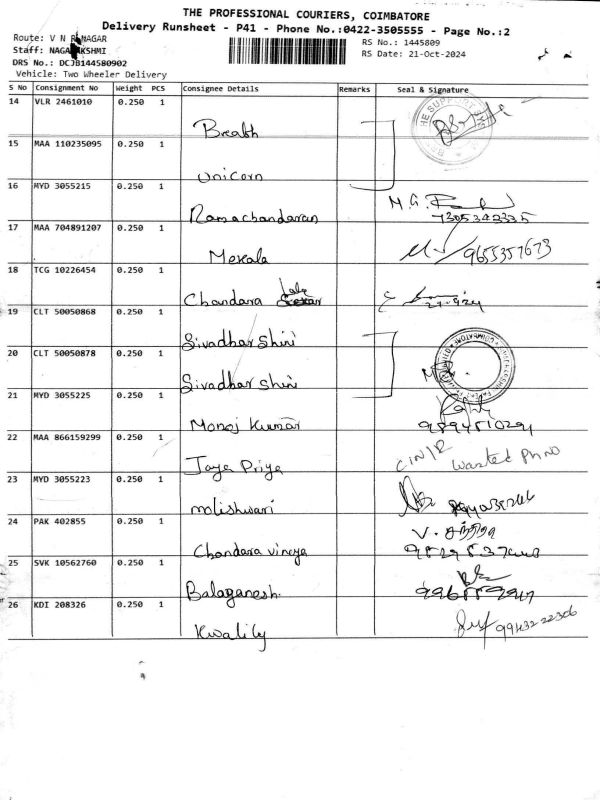 THE PROFESSIONAL COURIERS, COIMBATORE
Delivery Runsheet - P41 - Phone No.:0422-3505555 - Page No.:2
Route: V N R NAGAR
RS No.: 1445809
Staff: NAGALAKSHMI
RS Date: 21-Oct-2024
DRS No.: DCJB144580902
Vehicle: Two Wheeler Delivery
S No Consignment No Weight PCS Consignee Details Remarks Seal & Signature
14 VLR 2461010 0.250 1
Breath
15 MAA 110235095 0.250 1
Unicorn
16 MYD 3055215 0.250 1
Ramachandaran M.G. 7305342335
17 MAA 704891207 0.250 1
Mekala 9655357673
18 TCG 10226454 0.250 1
Chandara
19 CLT 50050868 0.250 1
Sivadharshini
20 CLT 50050878 0.250 1
Sivadharshini
21 MYD 3055225 0.250 1
Monoj Kumar
22 MAA 866159299 0.250 1
Jaya Priya Wasted Ph no
23 MYD 3055223 0.250 1
molishwari
24 PAK 402855 0.250 1
Chandara vinaya
25 SVK 10562760 0.250 1
Balaganesh.
26 KDI 208326 0.250 1
Kwality 99432 22306